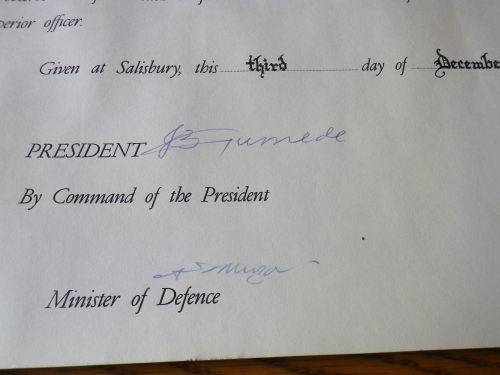 perior officer.
Given at Salisbury, this third day of December
PRESIDENT J Z Gumede
By Command of the President
Minister of Defence